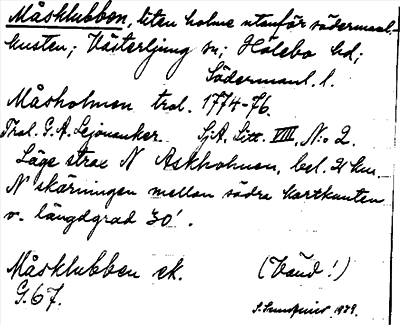 Måsklubben, liten holme utanför södermanl.-
kusten; Västerljung sn; Hölebo hd;
Södermanl. l.
Måsholmen trol. 1774-76.
Trol. G. A. Lejonanker. SjA. Litt. VIII, N:o 2.
Läge strax N Askholmen, bel. 2½ km
N skärningen mellan södra kartkanten
o. längdgrad 30'.
Måsklubben ek. (Vänd!)
G.67. 1929.